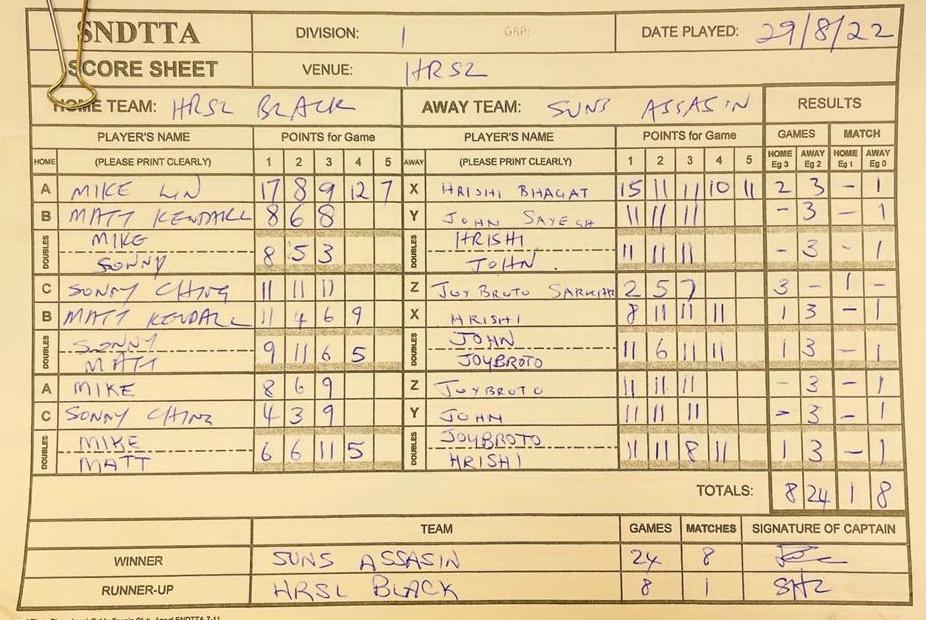 SNDTTA DIVISION: 1 GRP: DATE PLAYED: 29/8/22
SCORE SHEET VENUE: HRSL
HOME TEAM: HRSL BLACK AWAY TEAM: SUNS ASSASIN RESULTS
PLAYER'S NAME POINTS for Game PLAYER'S NAME POINTS for Game GAMES MATCH
HOME (PLEASE PRINT CLEARLY) 1 2 3 4 5 AWAY (PLEASE PRINT CLEARLY) 1 2 3 4 5 HOME Eg 3 AWAY Eg 2 HOME Eg 1 AWAY Eg 0
A MIKE LIN 17 8 9 12 7 X HRISHI BHAGAT 15 11 11 10 11 2 3 - 1
B MATT KENDALL 8 6 8 Y JOHN SAYEGH 11 11 11 - 3 - 1
DOUBLES MIKE HRISHI
SONNY 8 5 3 DOUBLES JOHN. 11 11 11 - 3 - 1
C SONNY CHING 11 11 11 Z JOYBROTO SARKAR 2 5 7 3 - 1 -
B MATT KENDALL 11 4 6 9 X HRISHI 8 11 11 11 1 3 - 1
DOUBLES SONNY JOHN
MATT 9 11 6 5 DOUBLES JOYBROTO 11 6 11 11 1 3 - 1
A MIKE 8 6 9 Z JOYBROTO 11 11 11 - 3 - 1
C SONNY CHING 4 3 9 Y JOHN 11 11 11 - 3 - 1
DOUBLES MIKE JOYBROTO
MATT 6 6 11 5 DOUBLES HRISHI 11 11 8 11 1 3 - 1
TOTALS: 8 24 1 8
TEAM GAMES MATCHES SIGNATURE OF CAPTAIN
WINNER SUNS ASSASIN 24 8
RUNNER-UP HRSL BLACK 8 1